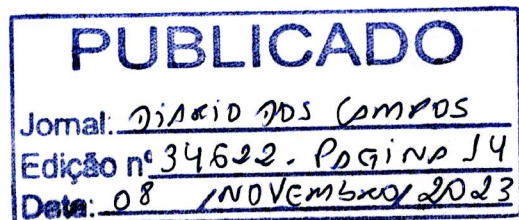 PUBLICADO
Jornal: DIARIO DOS CAMPOS
Edição nº 34622 - PAGINA 14
Data: 08 / NOVEMBRO / 2023